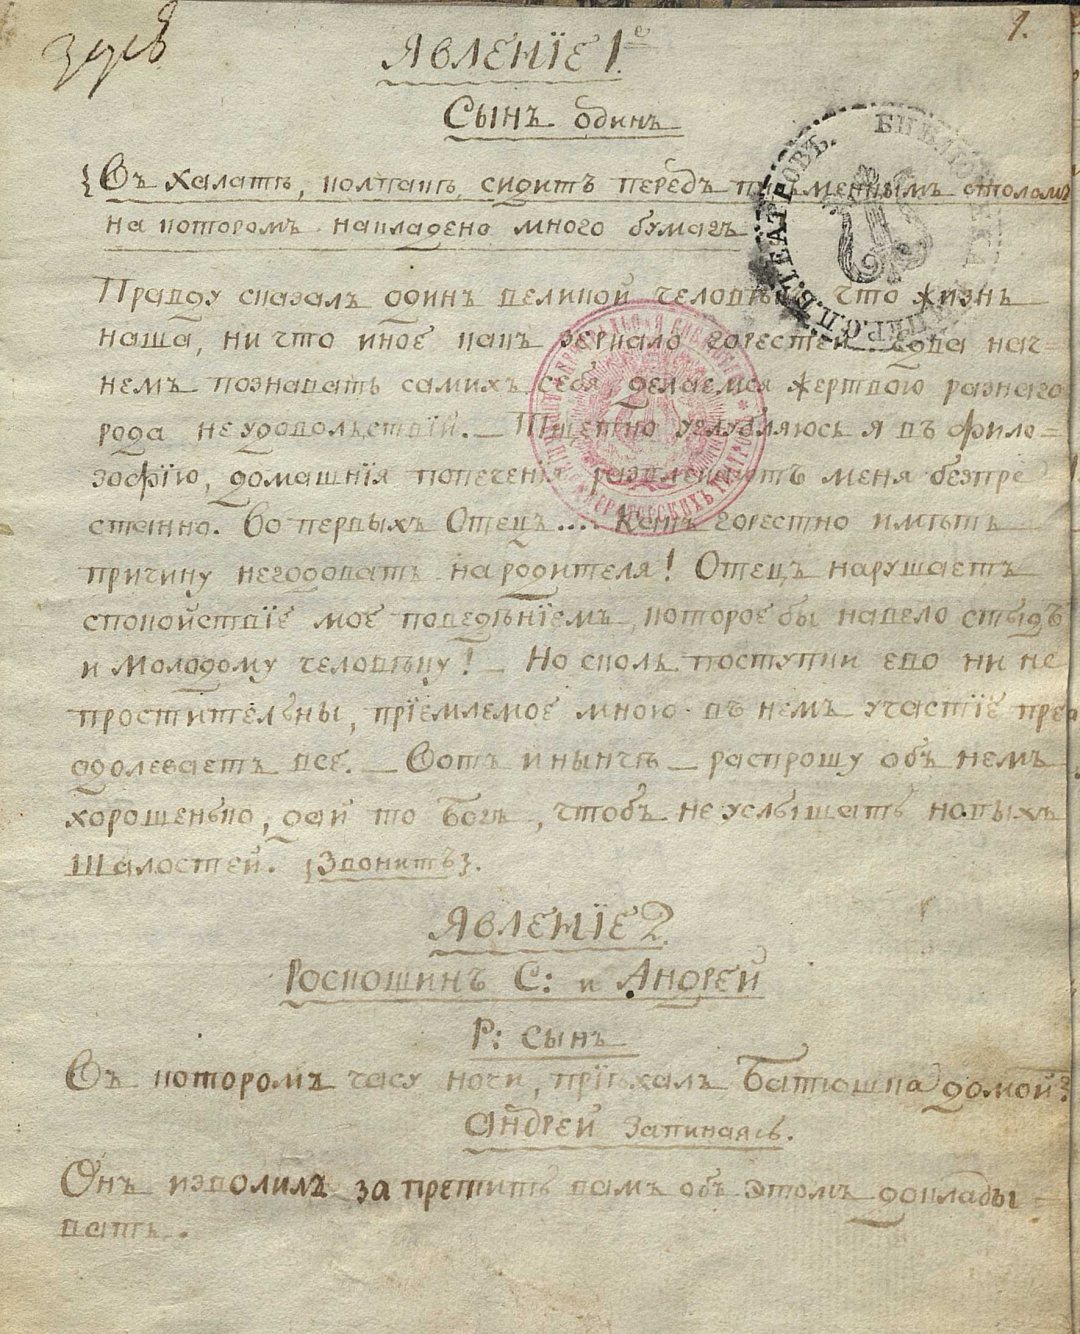 1.
ЯВЛЕНІЕ 1е
Сынъ одинъ
{Въ халатѣ, колпакѣ, сидитъ передъ письменнымъ столомъ
на которомъ накладено много бумагъ
Правду сказалъ одинъ великой человѣкъ, что жизнь
наша, ни что иное какъ зеркало горестей когда нач=
немъ познавать самихъ себя, делаемся жертвою разнаго
рода неудовольствій. — Тщетно углубляюсь я въ фило=
зофію, домашнія попеченія развлекаютъ меня безпре
станно. Во первыхъ Отецъ.... Какъ горестно имѣть
причину негодовать на родителя! Отецъ нарушаетъ
спокойствіе мое поведѣніемъ, которое бы навело стыдъ
и молодому человѣку! — Но сколь поступки ево ни не
простительны, пріемлемое мною въ немъ участіе прео
адолеваетъ все. — Вотъ и нынче — распрошу объ немъ
хорошенько, дай то Богъ, чтобъ не услышать новыхъ
шалостей. {Звонитъ}.
ЯВЛЕНІЕ 2.
Роскошинъ С: и Андрей
Р: Сынъ
Въ которомъ часу ночи, пріѣхалъ Батюшка домой?
Андрей запинаясь.
Онъ изволилъ запретить вамъ объ этомъ докладьі=
вать.
БИБЛІОТЕКА ИМПЕР. С.П.Б. ТЕАТРОВЪ.
ЦЕНТРАЛЬНАЯ БИБЛІОТЕКА ИМПЕРАТОРСКИХЪ ТЕАТРОВЪ